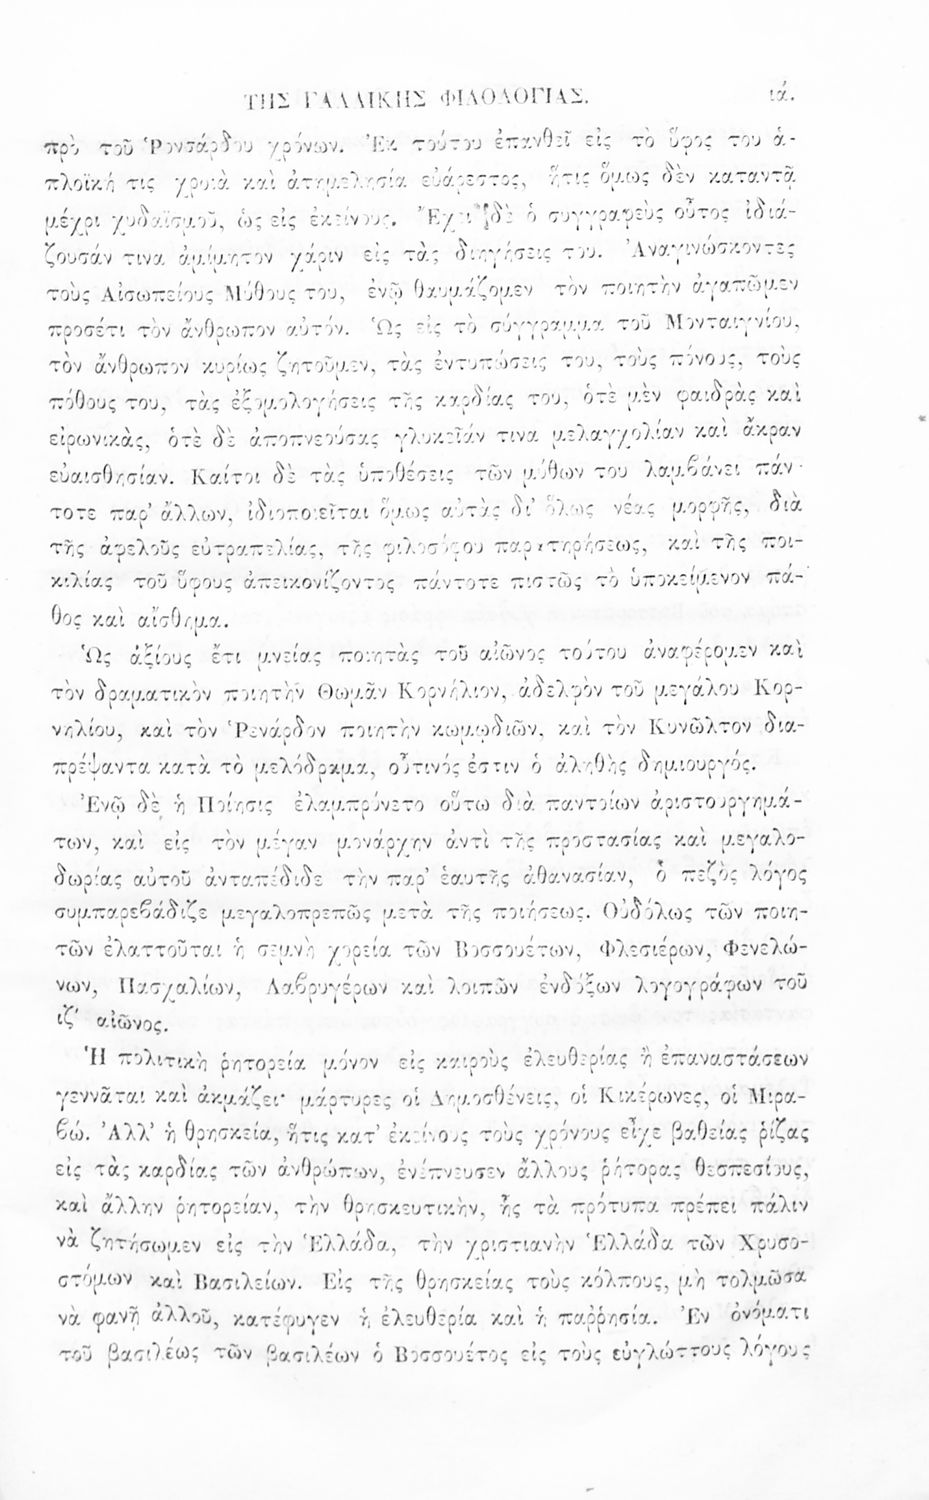 ΤΗΣ ΓΑΛΛΙΚΗΣ ΦΙΛΟΛΟΓΙΑΣ. ιά.
πρὸ τοῦ Ῥονσάρδου χρόνων. Ἐκ τούτου ἐπανθεῖ εἰς τὸ ὕφος του ἁ-
πλοϊκή τις χροιὰ καὶ ἀτημελησία εὐάρεστος, ἥτις ὅμως δὲν καταντᾷ
μέχρι χυδαϊσμοῦ, ὡς εἰς ἐκείνους. Ἔχει δὲ ὁ συγγραφεὺς οὗτος ἰδιά-
ζουσάν τινα ἀμίμητον χάριν εἰς τὰς διηγήσεις του. Ἀναγινώσκοντες
τοὺς Αἰσωπείους Μύθους του, ἐνῷ θαυμάζομεν τὸν ποιητὴν ἀγαπῶμεν
προσέτι τὸν ἄνθρωπον αὐτόν. Ὡς εἰς τὸ σύγγραμμα τοῦ Μονταιγνίου,
τὸν ἄνθρωπον κυρίως ζητοῦμεν, τὰς ἐντυπώσεις του, τοὺς πόνους, τοὺς
πόθους του, τὰς ἐξομολογήσεις τῆς καρδίας του, ὁτὲ μὲν φαιδρὰς καὶ
εἰρωνικὰς, ὁτὲ δὲ ἀποπνεούσας γλυκεῖάν τινα μελαγχολίαν καὶ ἄκραν
εὐαισθησίαν. Καίτοι δὲ τὰς ὑποθέσεις τῶν μύθων του λαμβάνει πάν-
τοτε παρ' ἄλλων, ἰδιοποιεῖται ὅμως αὐτὰς δι' ὅλως νέας μορφῆς, διὰ
τῆς ἀφελοῦς εὐτραπελίας, τῆς φιλοσόφου παρατηρήσεως, καὶ τῆς ποι-
κιλίας τοῦ ὕφους ἀπεικονίζοντος πάντοτε πιστῶς τὸ ὑποκείμενον πά-
θος καὶ αἴσθημα.
Ὡς ἀξίους ἔτι μνείας ποιητὰς τοῦ αἰῶνος τούτου ἀναφέρομεν καὶ
τὸν δραματικὸν ποιητὴν Θωμᾶν Κορνήλιον, ἀδελφὸν τοῦ μεγάλου Κορ-
νηλίου, καὶ τὸν Ῥενάρδον ποιητὴν κωμῳδιῶν, καὶ τὸν Κυνῶλτον δια-
πρέψαντα κατὰ τὸ μελόδραμα, οὗτινός ἐστιν ὁ ἀληθὴς δημιουργός.
Ἐνῷ δὲ ἡ Ποίησις ἐλαμπρύνετο οὕτω διὰ παντοίων ἀριστουργημά-
των, καὶ εἰς τὸν μέγαν μονάρχην ἀντὶ τῆς προστασίας καὶ μεγαλο-
δωρίας αὐτοῦ ἀνταπέδιδε τὴν παρ' ἑαυτῆς ἀθανασίαν, ὁ πεζὸς λόγος
συμπαρεβάδιζε μεγαλοπρεπῶς μετὰ τῆς ποιήσεως. Οὐδόλως τῶν ποιη-
τῶν ἐλαττοῦται ἡ σεμνὴ χορεία τῶν Βοσσουέτων, Φλεσιέρων, Φενελώ-
νων, Πασχαλίων, Λαβρυγέρων καὶ λοιπῶν ἐνδόξων λογογράφων τοῦ
ιζ' αἰῶνος.
Ἡ πολιτικὴ ῥητορεία μόνον εἰς καιροὺς ἐλευθερίας ἢ ἐπαναστάσεων
γεννᾶται καὶ ἀκμάζει· μάρτυρες οἱ Δημοσθένεις, οἱ Κικέρωνες, οἱ Μιρα-
βώ. Ἀλλ' ἡ θρησκεία, ἥτις κατ' ἐκείνους τοὺς χρόνους εἶχε βαθείας ῥίζας
εἰς τὰς καρδίας τῶν ἀνθρώπων, ἐνέπνευσεν ἄλλους ῥήτορας θεσπεσίους,
καὶ ἄλλην ῥητορείαν, τὴν θρησκευτικὴν, ἧς τὰ πρότυπα πρέπει πάλιν
νὰ ζητήσωμεν εἰς τὴν Ἑλλάδα, τὴν χριστιανὴν Ἑλλάδα τῶν Χρυσο-
στόμων καὶ Βασιλείων. Εἰς τῆς θρησκείας τοὺς κόλπους, μὴ τολμῶσα
νὰ φανῇ ἀλλοῦ, κατέφυγεν ἡ ἐλευθερία καὶ ἡ παῤῥησία. Ἐν ὀνόματι
τοῦ βασιλέως τῶν βασιλέων ὁ Βοσσουέτος εἰς τοὺς εὐγλώττους λόγους